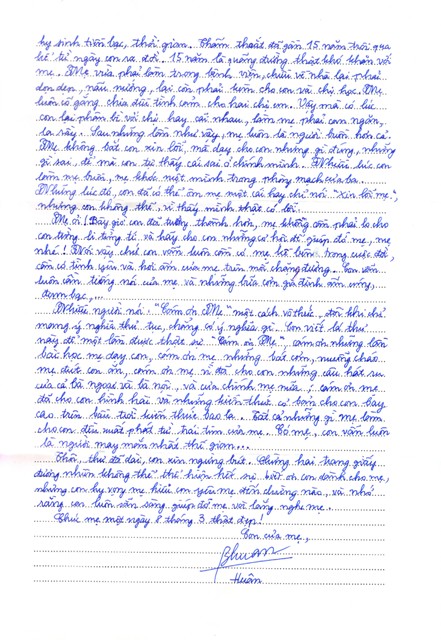 hy sinh tiền bạc, thời gian. Thấm thoắt đã gần 15 năm trời qua
kể từ ngày con ra đời. 15 năm là quãng đường thật khó khăn với
mẹ. Mẹ vừa phải làm trong bệnh viện, chiều về nhà lại phải
dọn dẹp, nấu nướng, lại còn phải kèm cho con và chị học. Mẹ
luôn cố gắng chia đều tình cảm cho hai chị em. Vậy mà có lúc
con lại phân bì với chị hay cãi nhau, làm mẹ phải can ngăn,
la rầy. Sau những lần như vậy, mẹ luôn là người buồn hơn cả.
Mẹ không bắt con xin lỗi, mà dạy cho con những gì đúng, những
gì sai, để mà con tự thấy cái sai ở chính mình. Nhiều lúc con
làm mẹ buồn, mẹ khóc một mình trong phòng mạch của ba.
Những lúc đó, con đã có thể ôm mẹ một cái hay chỉ nói "Xin lỗi mẹ",
nhưng con không thể, vì thấy mình thật có lỗi.
Mẹ ơi! Bây giờ con đã trưởng thành hơn, mẹ không cần phải lo cho
con từng li từng tí và hãy cho con những cơ hội để giúp đỡ mẹ, mẹ
nhé! Với con vẫn luôn có mẹ kề bên trong cuộc đời,
còn có tình yêu và hơi ấm của mẹ trên mỗi chặng đường. Con vẫn
luôn cần tiếng nói của mẹ và những bữa cơm gia đình ấm cúng,
đạm bạc,...
Nhiều người nói "Cám ơn Mẹ" một cách vô thức, đôi khi chỉ
mang ý nghĩa thủ tục, chẳng có ý nghĩa gì. Con viết lá thư
này để một lần được thật sự "Cám ơn Mẹ", cám ơn những lần
bài học mẹ dạy con, cám ơn mẹ những bát cơm, muỗng cháo
mẹ đút con ăn, cám ơn mẹ vì đã cho con những câu hát ru
của cả bà ngoại và bà nội, và của chính mẹ nữa; cám ơn mẹ
đã cho con hình hài và những kiến thức cơ bản cho con bay
cao trên bầu trời kiến thức bao la. Tất cả những gì mẹ làm
cho con đều xuất phát từ trái tim của mẹ. Có mẹ, con vẫn luôn
là người may mắn nhất thế gian...
Thôi, thư đã dài, con xin ngừng bút. Chừng hai trang giấy
đương nhiên không thể thể hiện hết sự biết ơn con dành cho mẹ,
nhưng con hy vọng mẹ hiểu con yêu mẹ đến dường nào, và nhớ
rằng con luôn sẵn sàng giúp đỡ mẹ và lắng nghe mẹ.
Chúc mẹ một ngày 8 tháng 3 thật đẹp!
Con của mẹ,
Huân